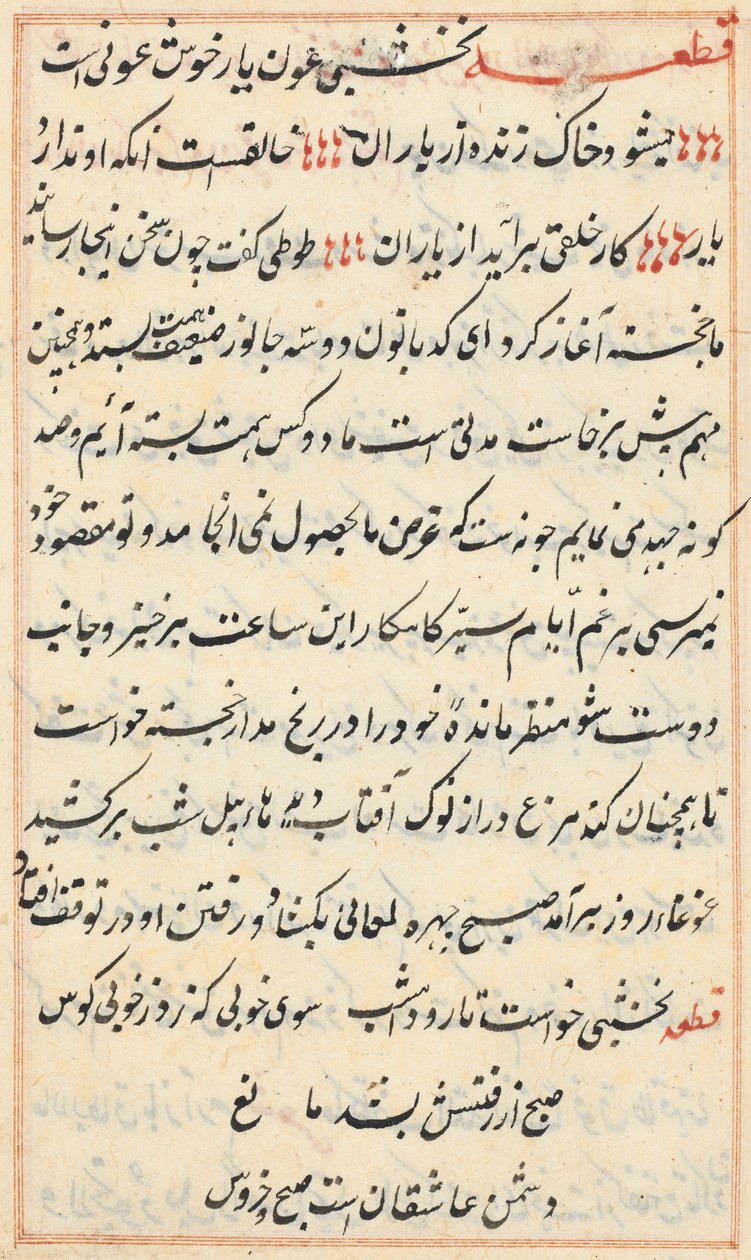 قطعه نخشبی عون یار خوش عونی است
میشو و خاک زنده از یاران خالقست آنکه او ندارد
یار کار خلقی برآید از یاران طوطی گفت چون سخن اینجا رسانید
با خجسته آغاز کرد ای کدبانو دو سه جانور ضعیف همت بستند و همچنین
مهم پیش برخاست مدتی است ما دو کس همت بسته آئیم و صد
کونه جهد می نمایم چونست که غرض ما بحصول نمی انجامد و تو مقصود خود
نمیرسی برغم ایام ستیزکار این ساعت برخیز و جانب
دوست شو منتظر مانده خود را در رنج مدار خجسته خواست
تا همچنان کند مرغ دراز نوک آفتاب پیل شب برکشید
غوغاء روز برآمد صبح چهره لمعانی بکشاد و رفتن او در توقف افتاد
قطعه نخشبی خواست تا رود امشب سوی خوبی که زو ز خوبی کوس
صبح از رفتنش بشد مانع
دشمن عاشقان است صبح و خروس